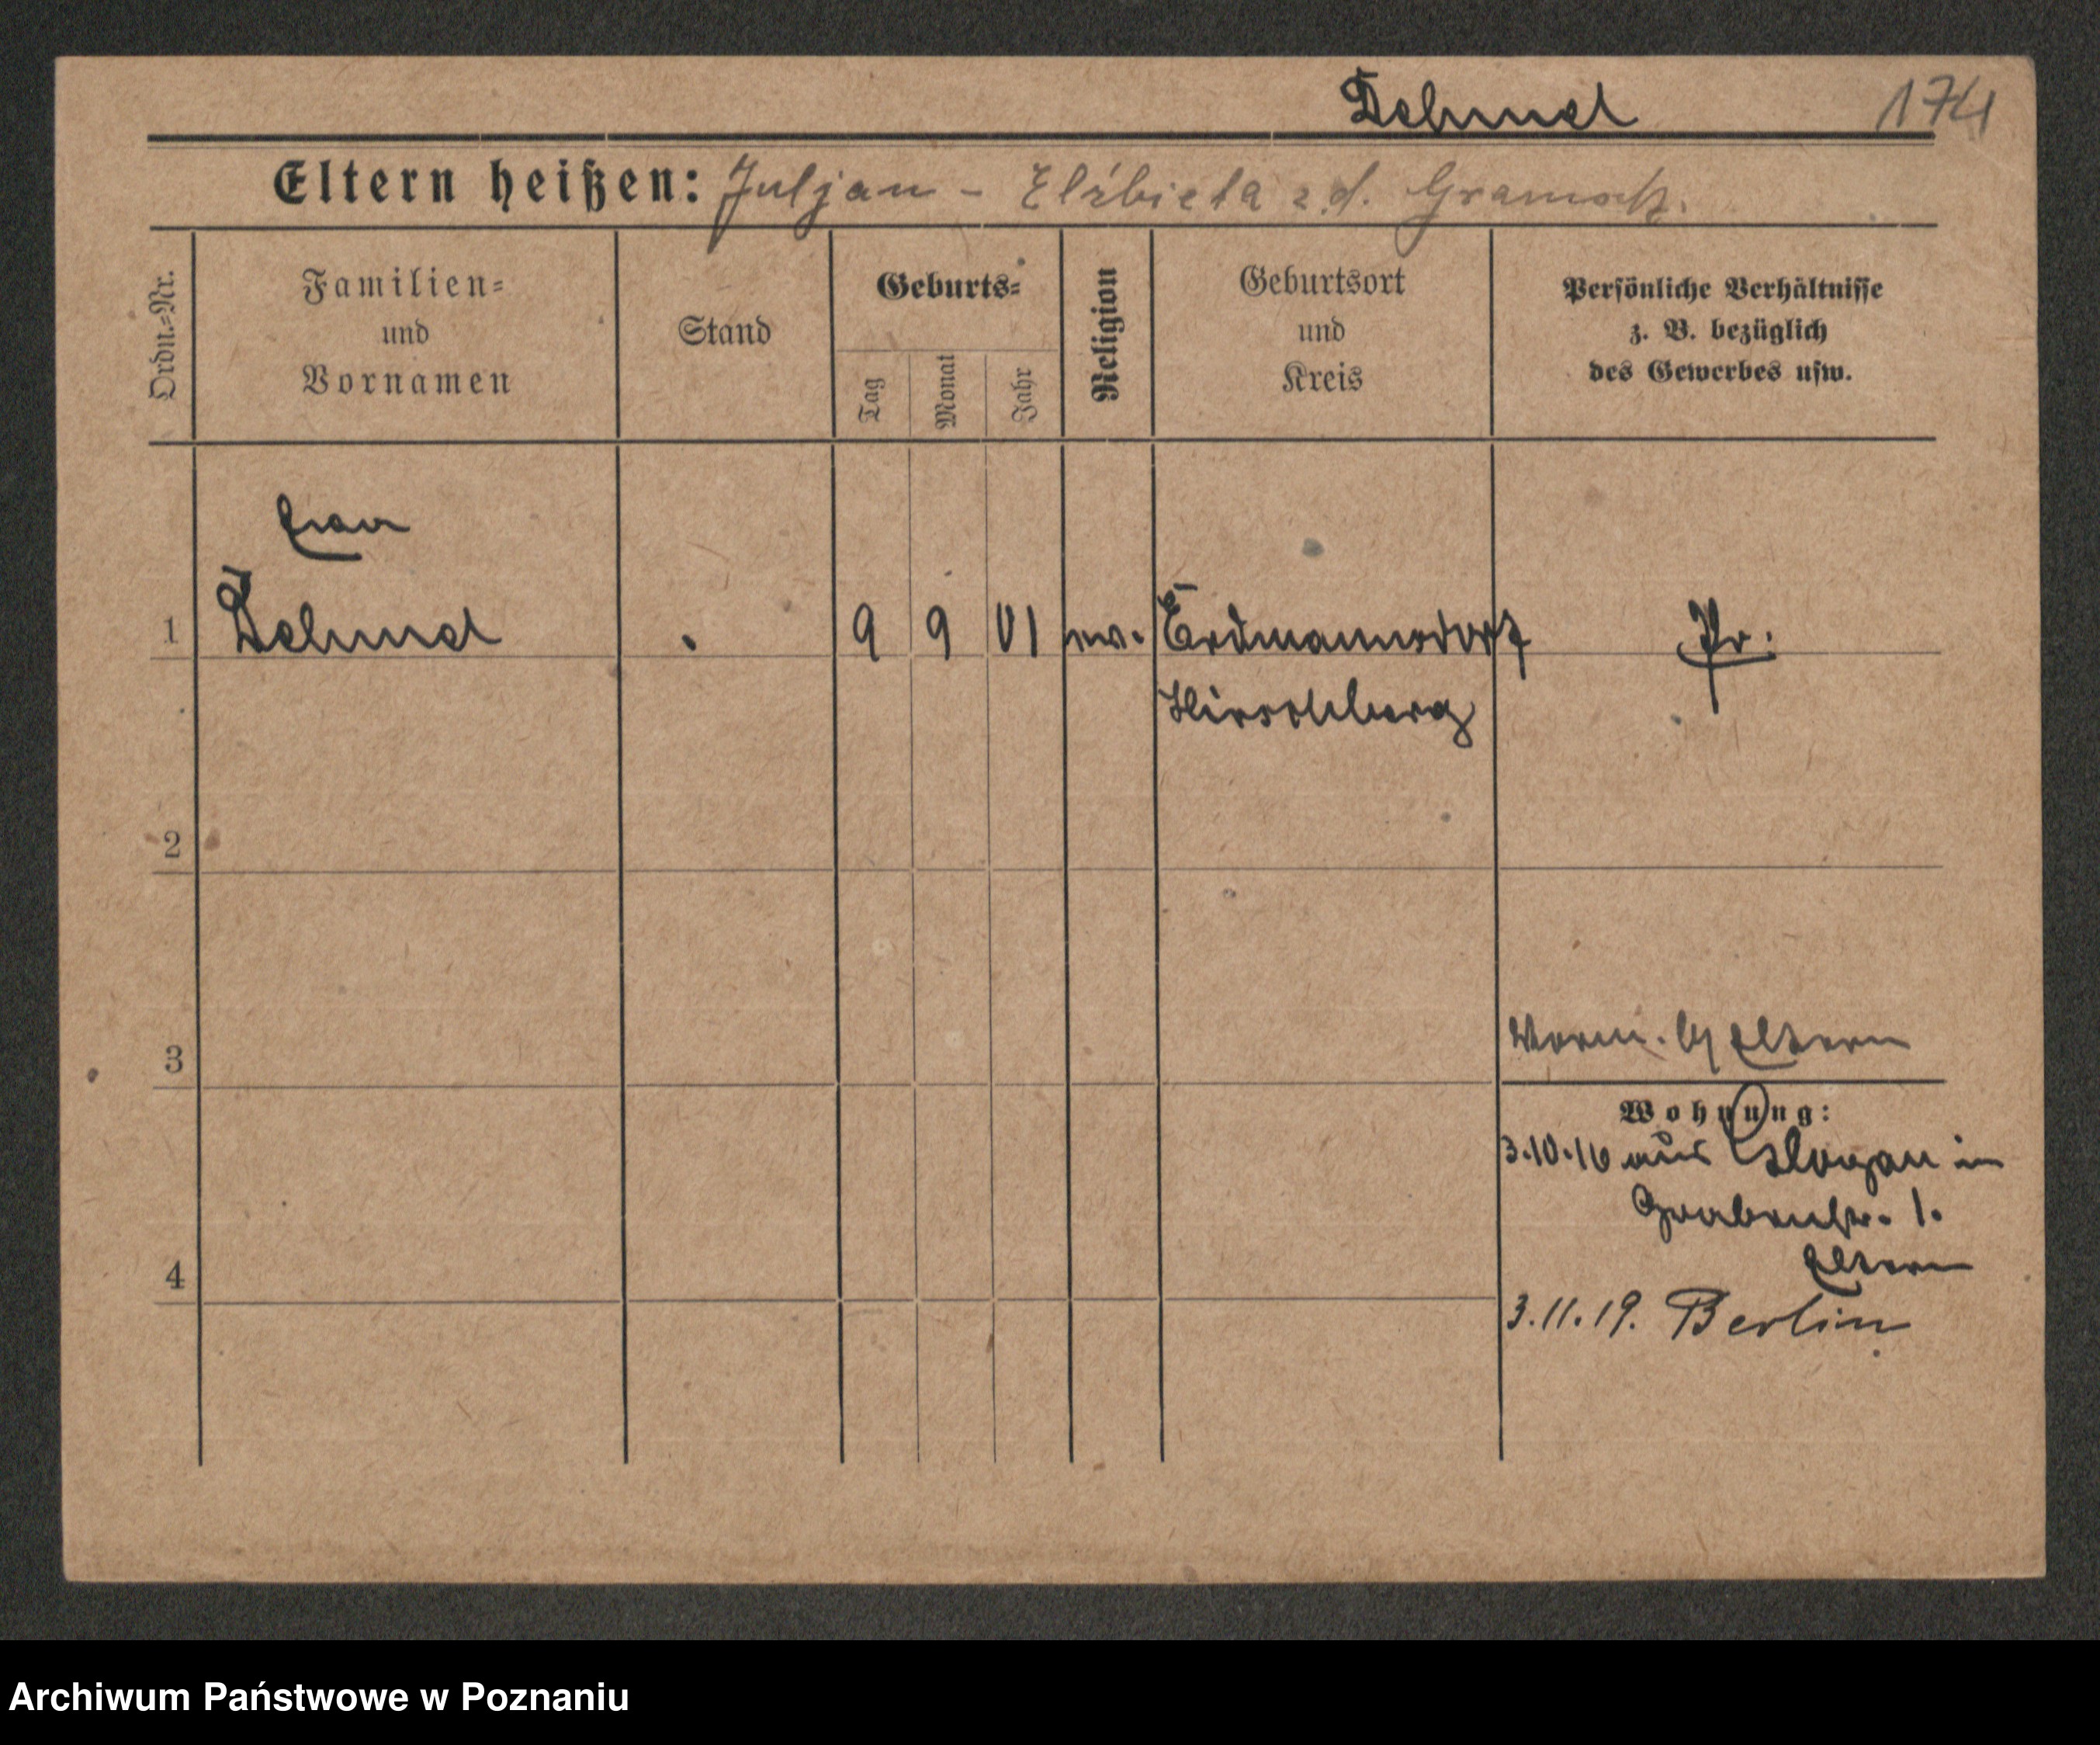 Dehmel 174
Eltern heißen: Juljan - Elżbieta z d. Gramsch.
Ordn.=Nr.
Familien=
und
Vornamen
Stand
Geburts=
Tag
Monat
Jahr
Religion
Geburtsort
und
Kreis
Persönliche Verhältnisse
z. B. bezüglich
des Gewerbes usw.
1 Dehmel . 9 9 01 ev. Erdmannsdorf Pr.
Hirschberg
2
3
Eltern
Wohnung:
3.10.16 aus Glogau in
Grabenstr. 1.
Eltern
4
3.11.19. Berlin
Archiwum Państwowe w Poznaniu